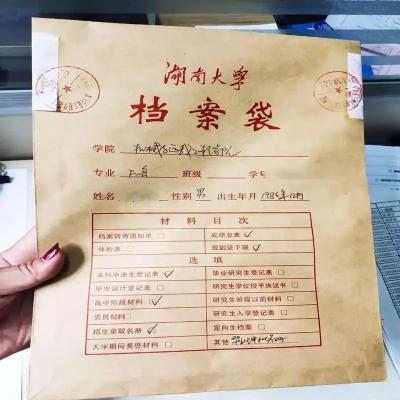 湖南大学
档案袋
学院 机械与运载工程学院
专业 班级 学号
姓名 性别 男 出生年月 1985年12月
材料目次
档案转寄通知单 □ 成绩总表 ☑
体检表 □ 报到证下联 ☑
选填
本科毕业生登记表 ☑ 毕业研究生登记表 □
毕业设计登记表 □ 研究生学位授予决议书 □
高中阶段材料 ☑ 研究生阶段以前材料 □
党员材料 □ 研究生入学登记表 □
招生录取名册 ☑ 定向生档案 □
大学期间奖惩材料 □ 其他